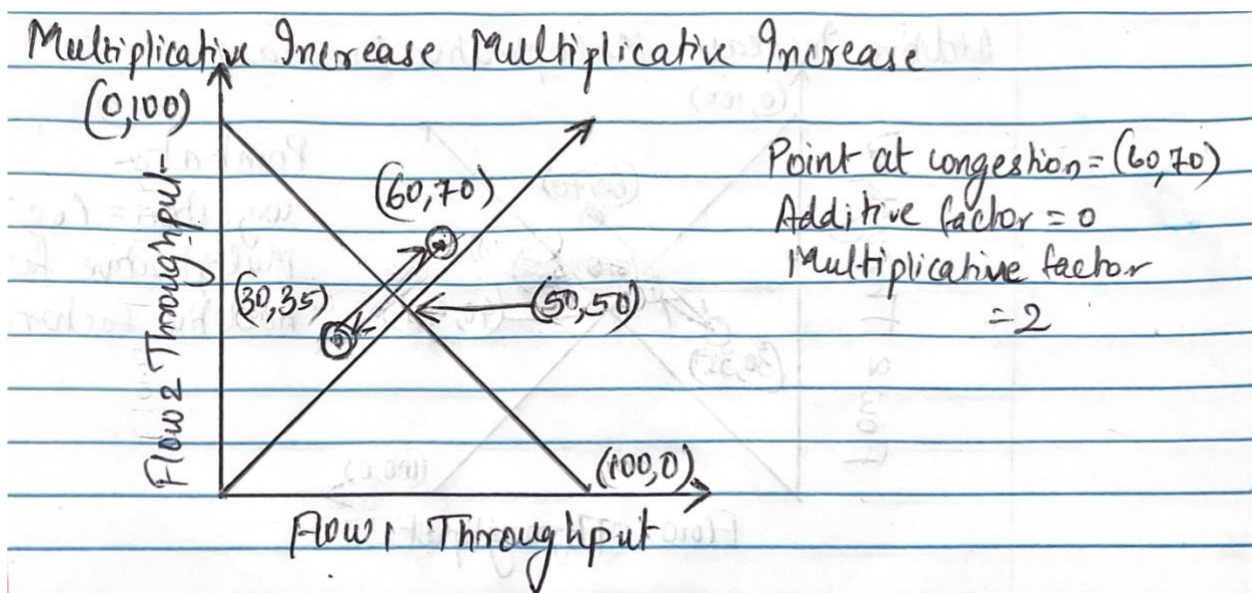 Multiplicative Increase Multiplicative Increase
(0,100)
(60,70)
(30,35)
(50,50)
(100,0)
Flow 2 Throughput
Flow 1 Throughput
Point at congestion = (60,70)
Additive factor = 0
Multiplicative factor
= 2